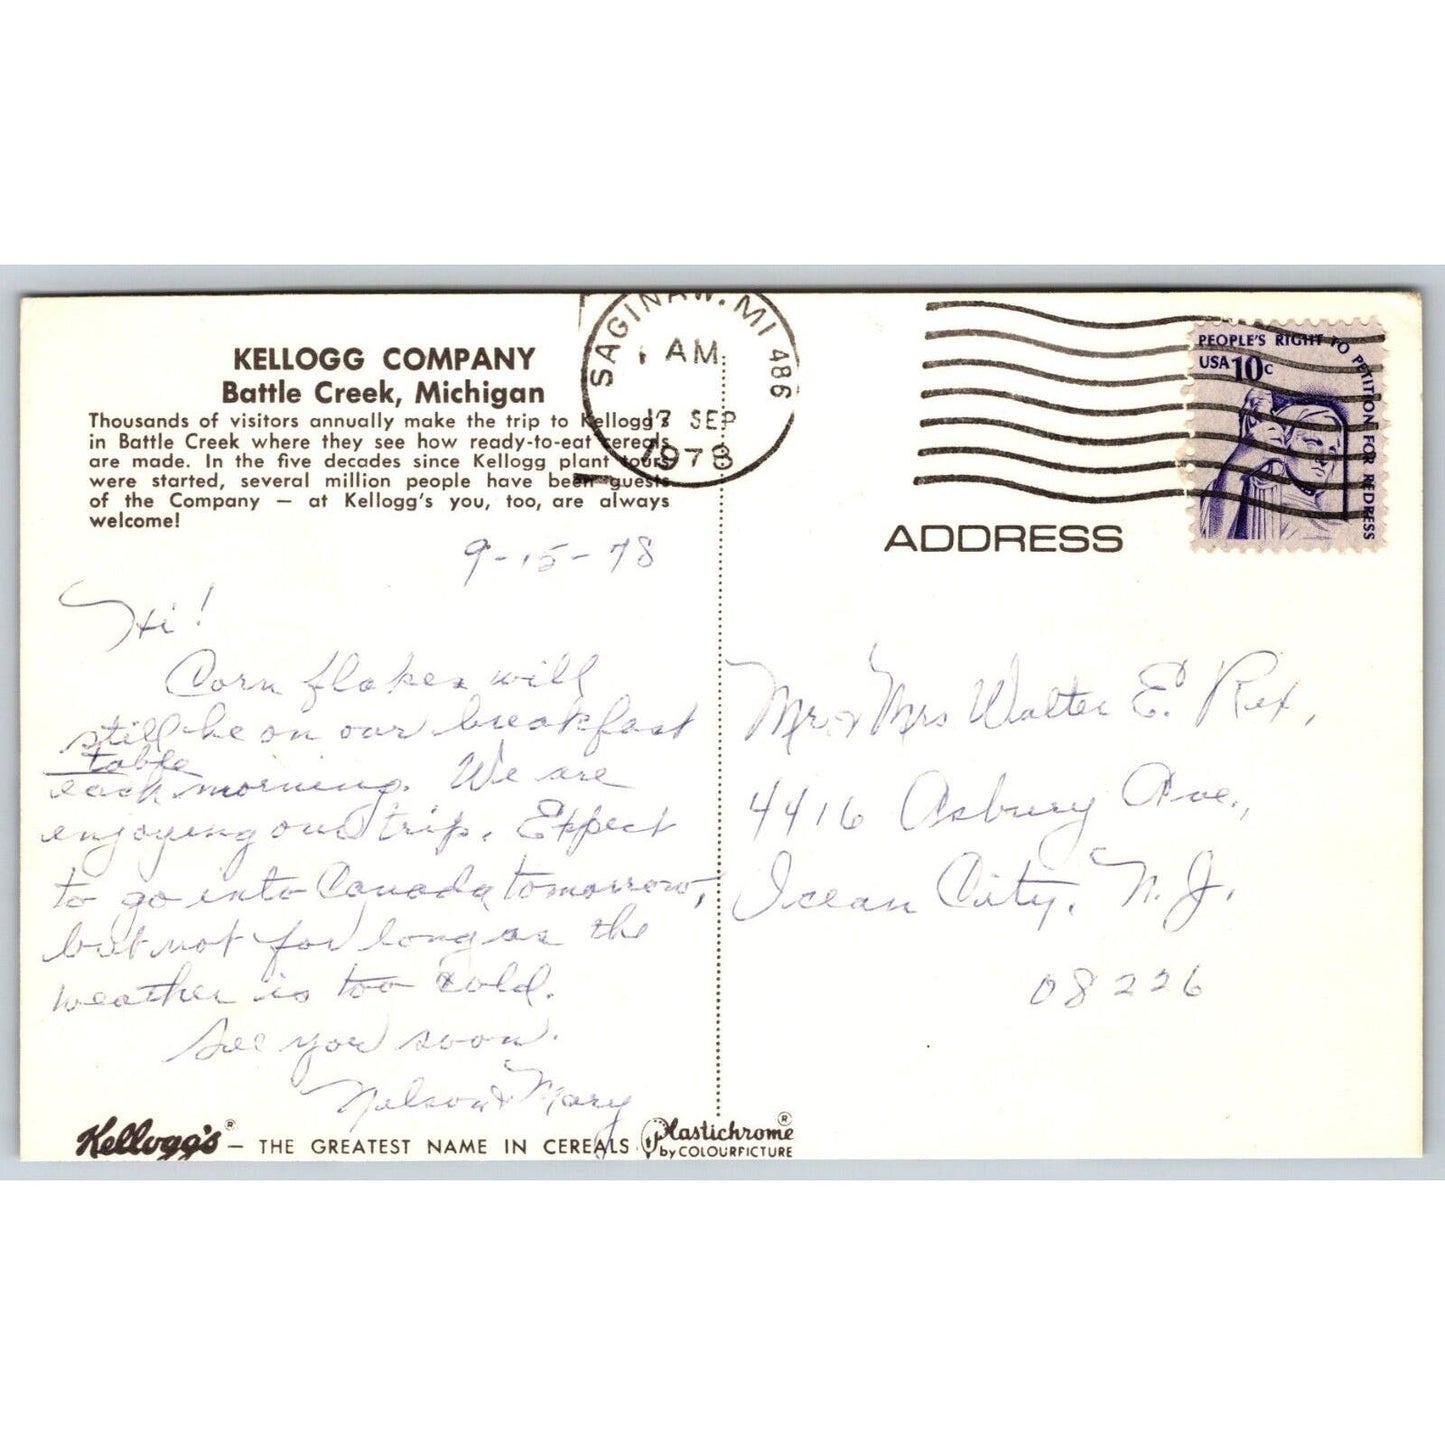 KELLOGG COMPANY
Battle Creek, Michigan
Thousands of visitors annually make the trip to Kellogg's
in Battle Creek where they see how ready-to-eat cereals
are made. In the five decades since Kellogg plant tours
were started, several million people have been guests
of the Company — at Kellogg's you, too, are always
welcome!
SAGINAW. MI 486
AM
17 SEP
1978
PEOPLE'S RIGHT TO PETITION FOR REDRESS
USA 10c
ADDRESS
9-15-78
Hi!
Corn flakes will
still be on our breakfast
table
each morning. We are
enjoying our trip. Expect
to go into Canada tomorrow,
but not for long as the
weather is too cold.
See you soon.
Nelson & Mary
Mr & Mrs Walter E. Rex,
4416 Asbury Ave.,
Ocean City, N.J.
08226
Kellogg's® — THE GREATEST NAME IN CEREALS
Plastichrome®
by COLOURPICTURE